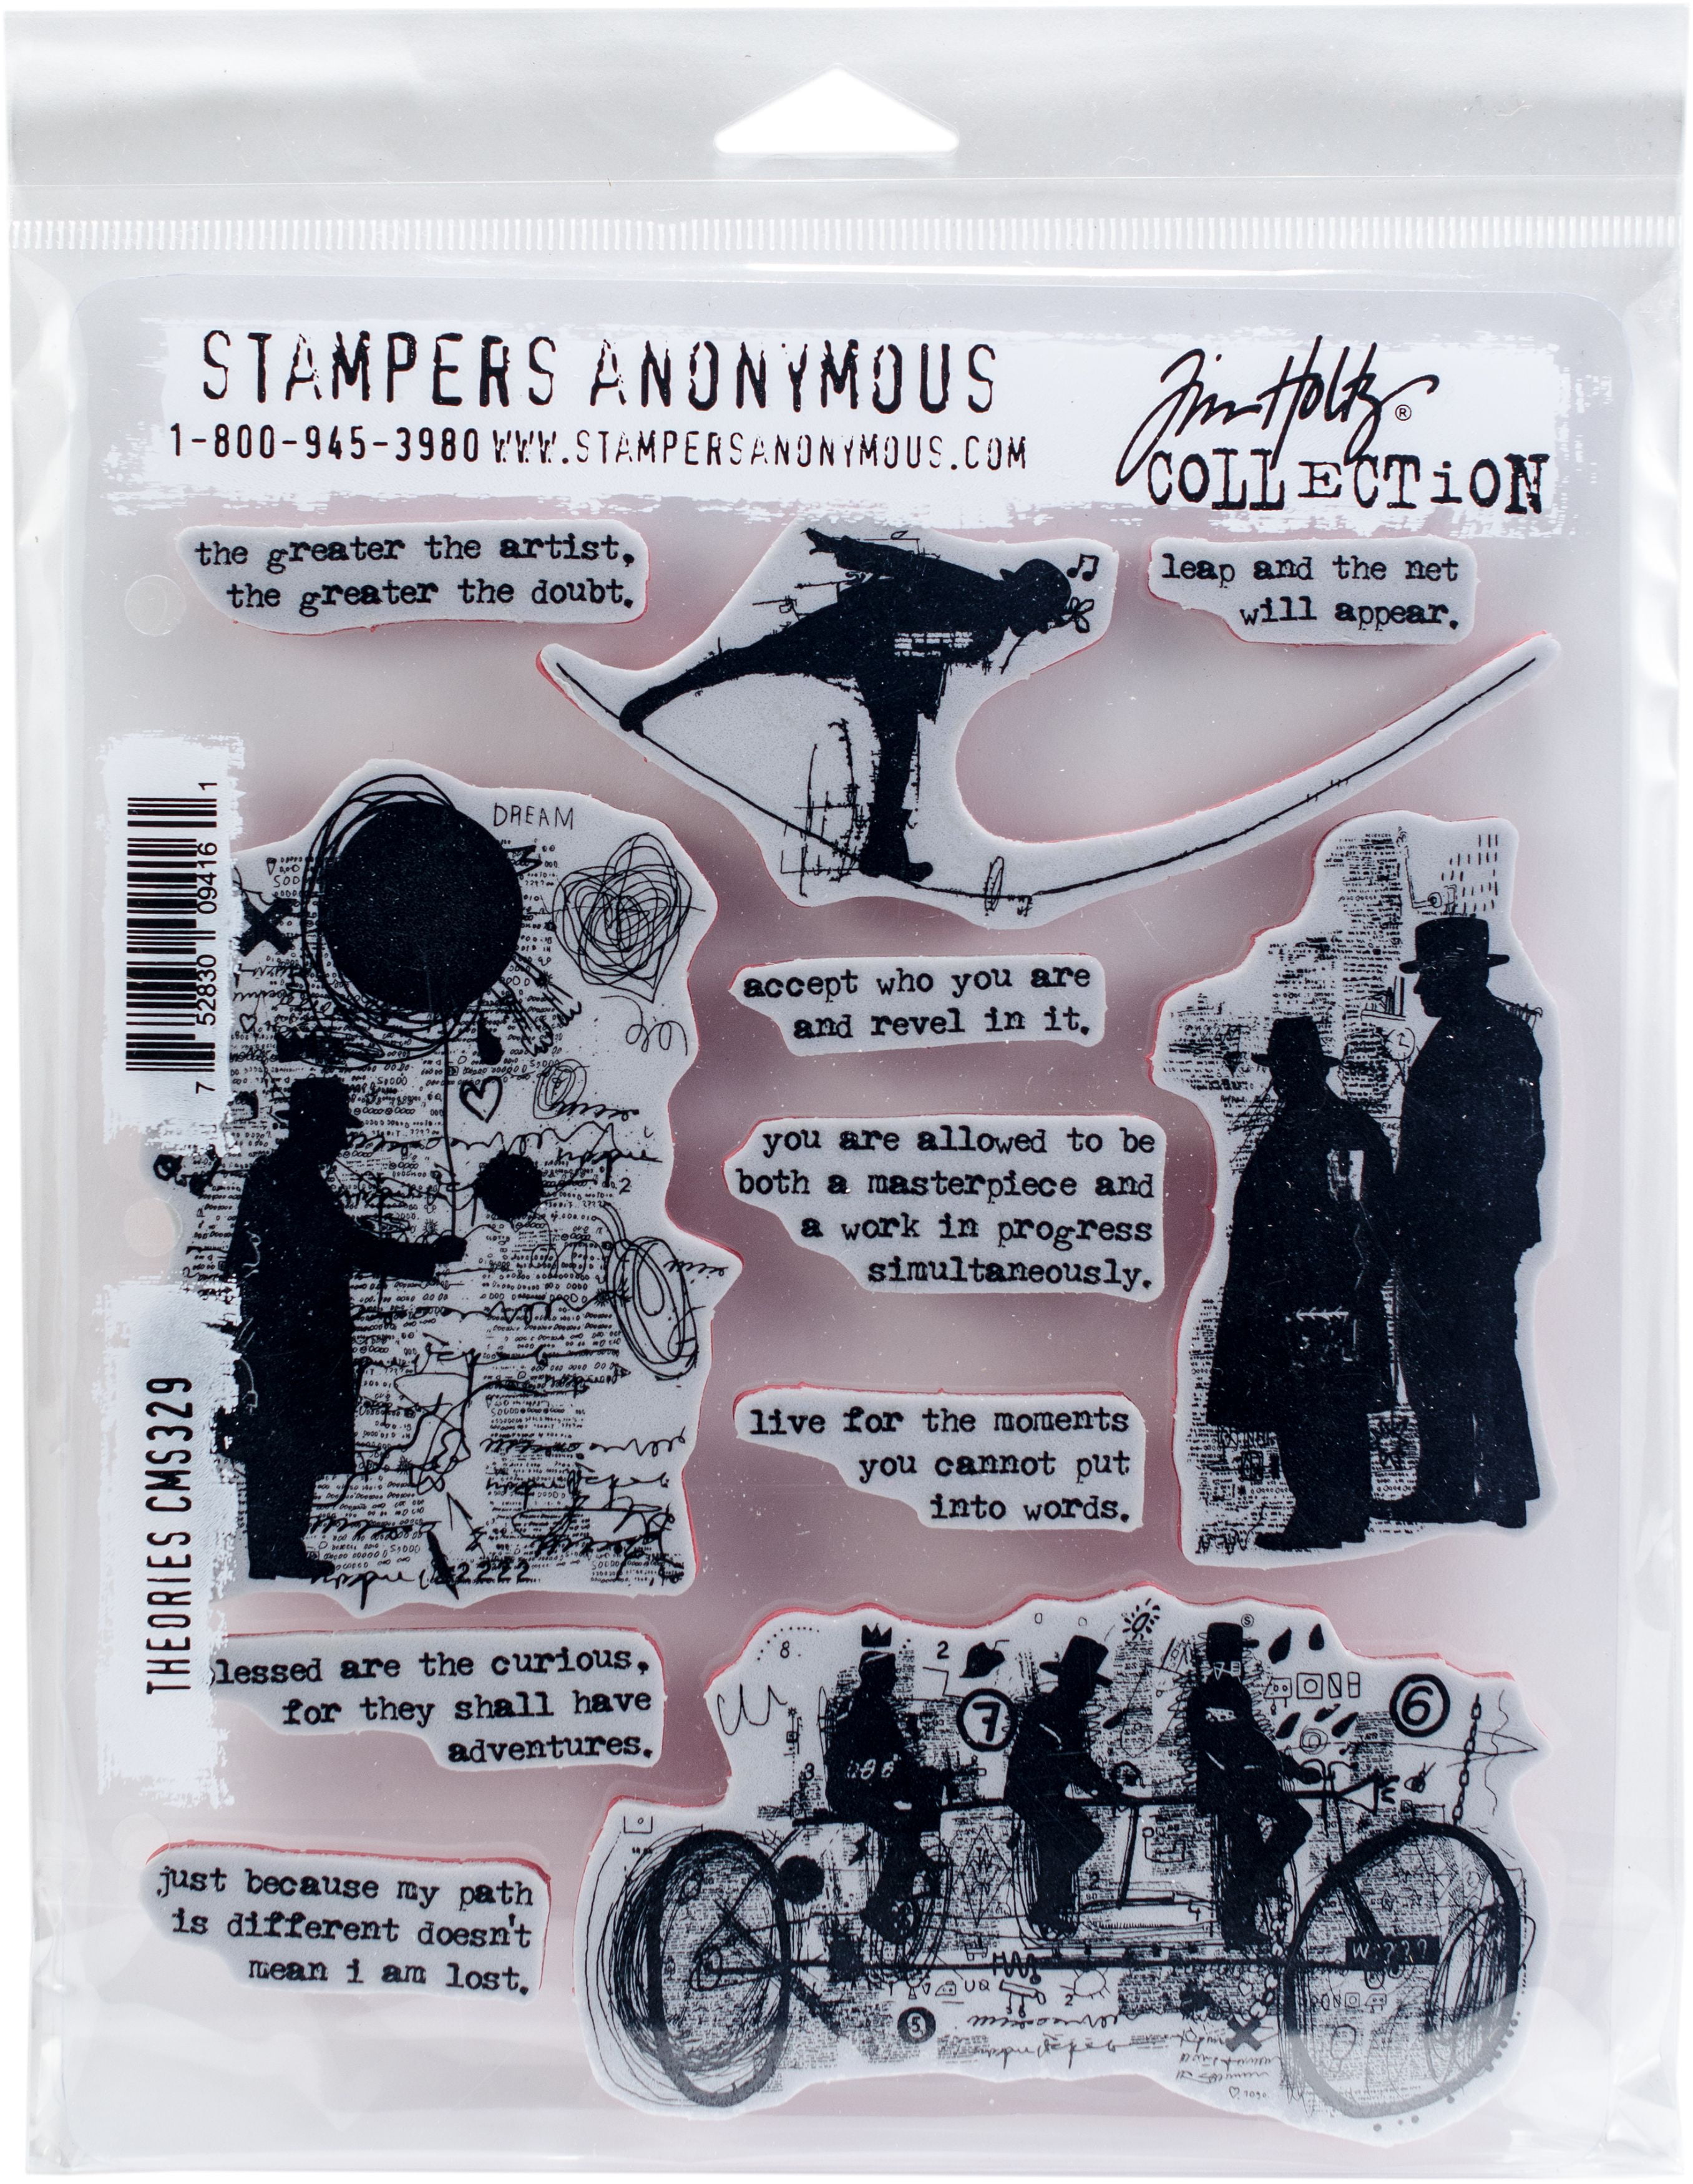 STAMPERS ANONYMOUS
1-800-945-3980 WWW.STAMPERSANONYMOUS.COM
Tim Holtz®
COLLECTiON
the greater the artist,
the greater the doubt.
leap and the net
will appear.
DREAM
accept who you are
and revel in it.
you are allowed to be
both a masterpiece and
a work in progress
simultaneously.
live for the moments
you cannot put
into words.
7 52830 09416 1
THEORIES CMS329
lessed are the curious,
for they shall have
adventures.
just because my path
is different doesn't
mean i am lost.
8
2
7
6
3
2
4
5
2
2222